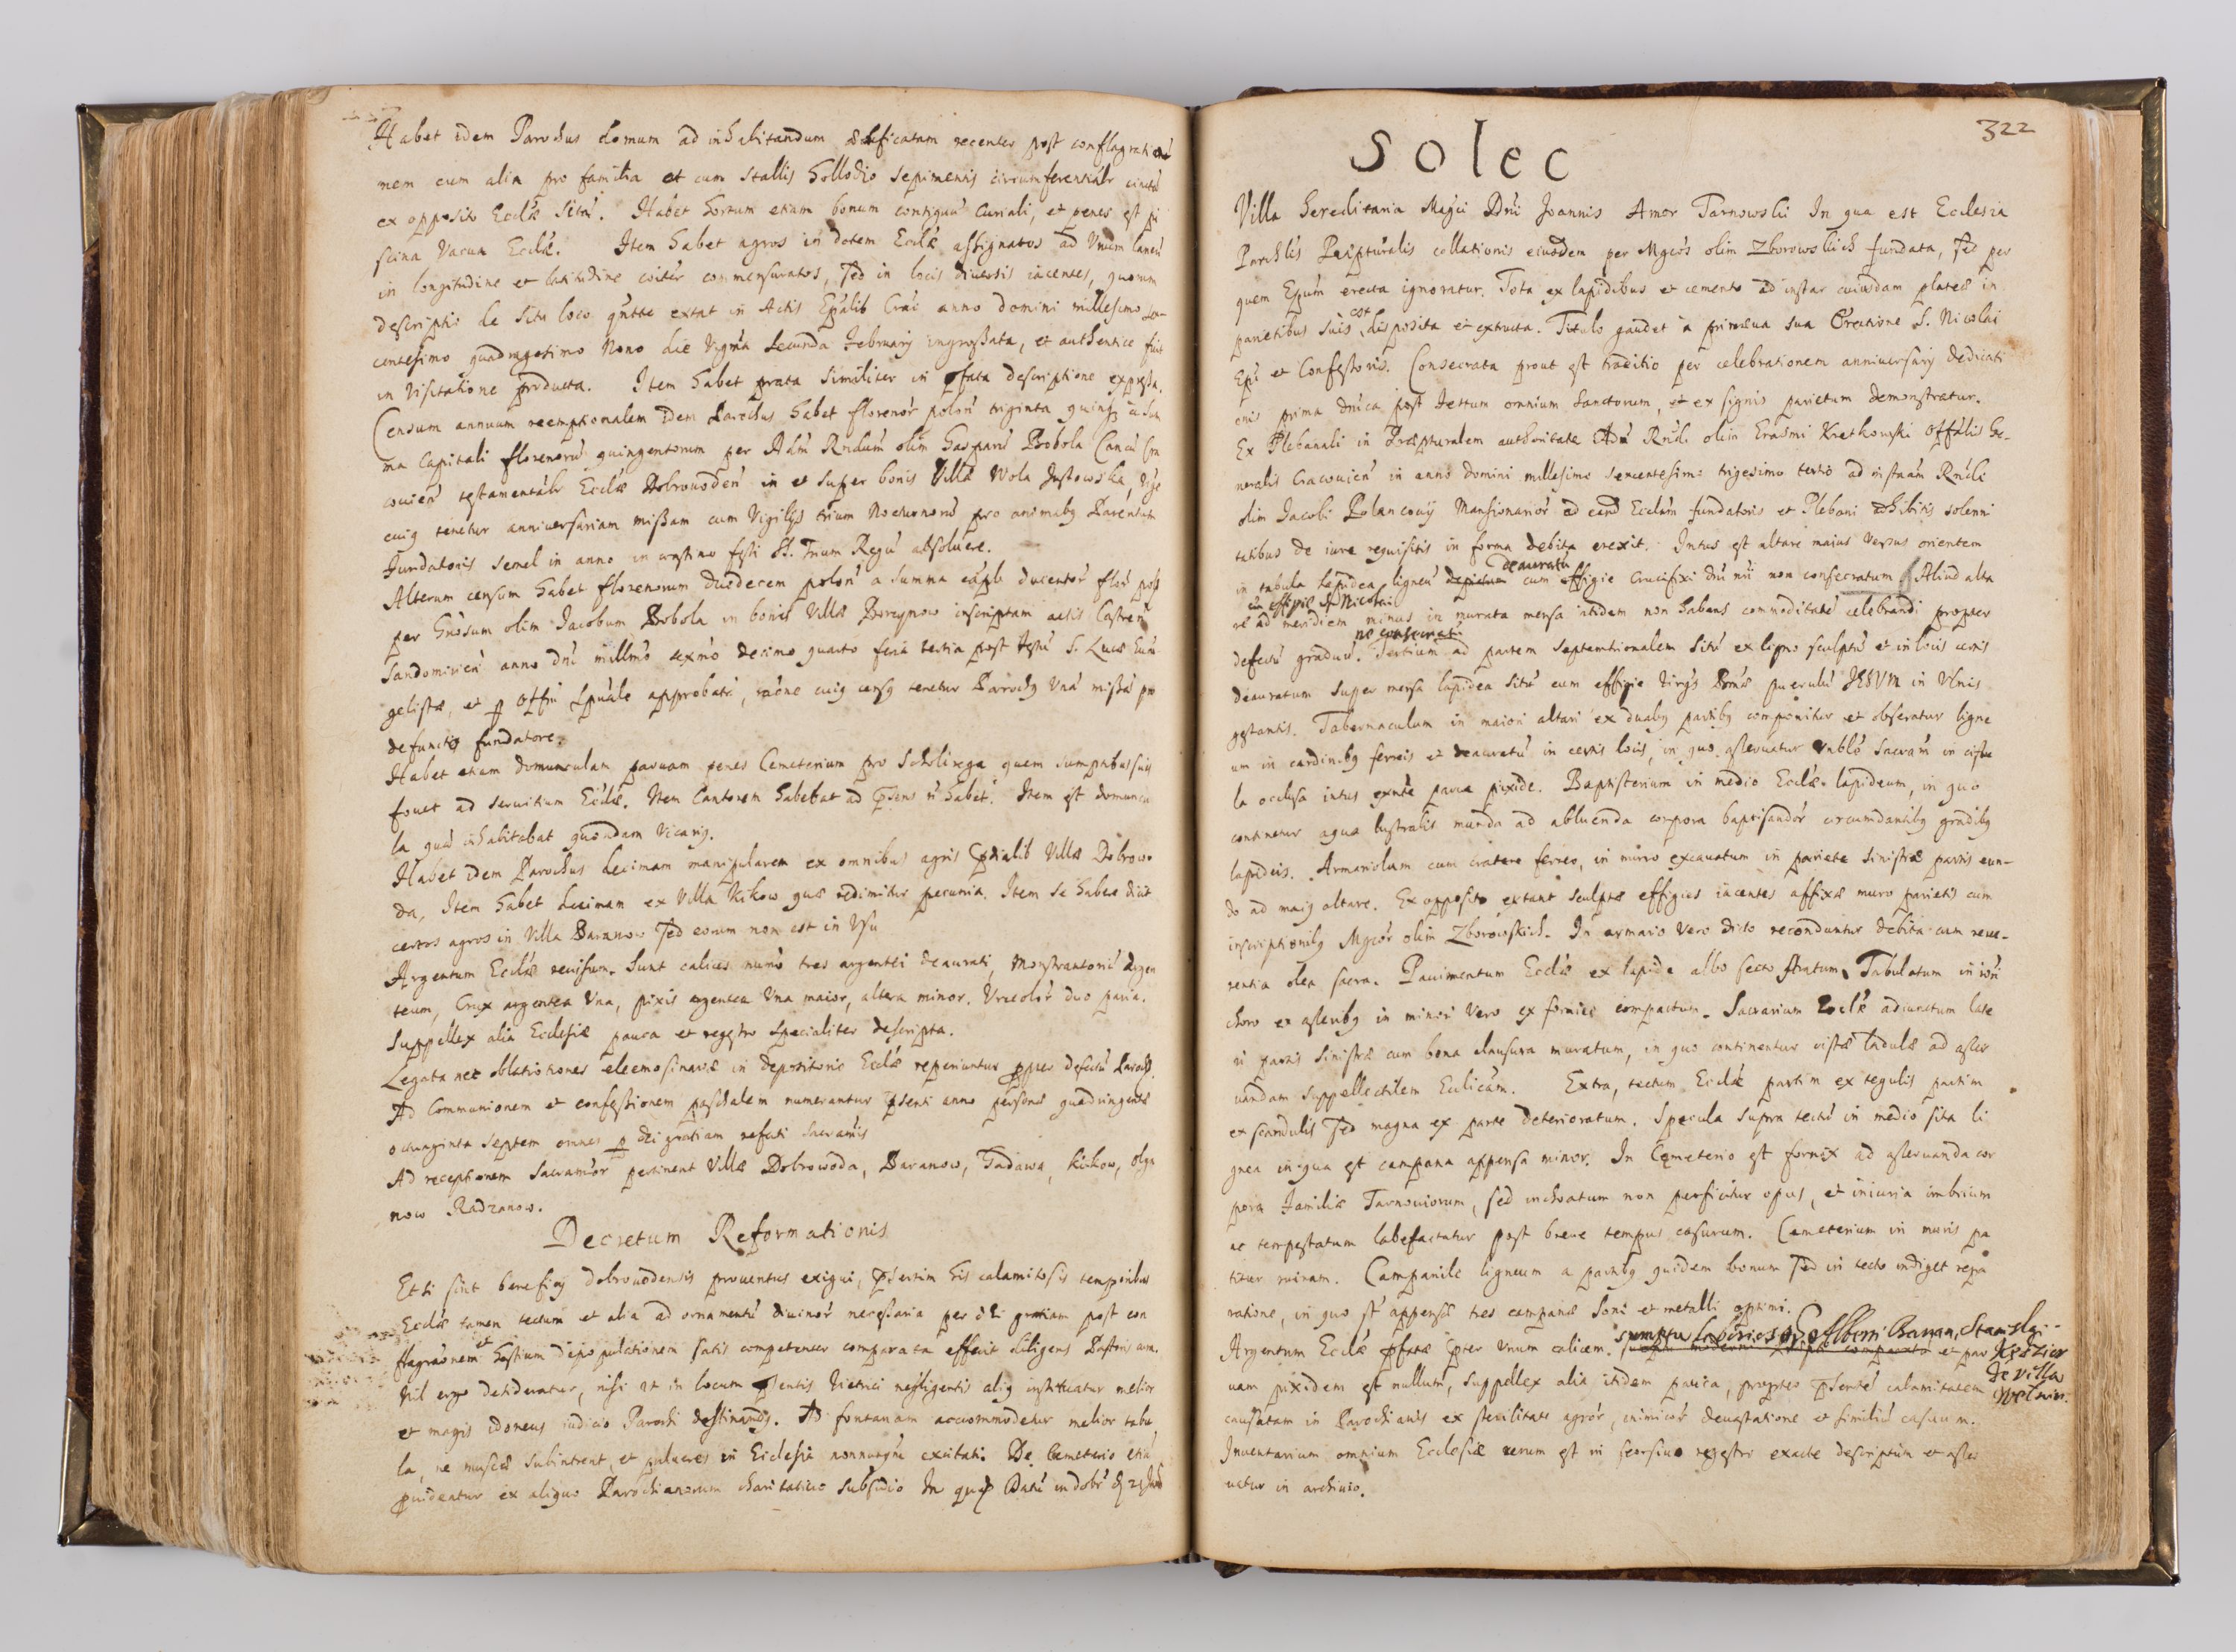 Habet idem Parochus domum ad inhabitandum ædificatam recenter post conflagratio
nem cum alia pro familia et cum stallis Hollodio sepimentis circumferentialr cinctũ
ex opposito Eccłæ sitã. Habet hortum etiam bonum contiguũ Curiali, et penes est pi
scina Vacua Eccłæ. Item habet agros in dotem Eccłæ assignatos ad Vnum laneũ
in longitudine et latitudine coitèr commensuratos, sed in locis diuersis iacentes, quorum
descriptio de situ loco extat in Actis Epalib Crac anno domini millesimo sex-
centesimo quadragesimo Nono die Vigesa secunda February ingrossata, et authentice fuit
in Visitatione producta. Item habet prata similiter in pfata descriptione expressa.
Censum annuum reemptionalem idem Parochus habet florenor polon triginta quinq a Sum
ma Capitali florenorũ quingentorum per Adm Rndum olim Gasparũ Bobola Canců Cra
couień testamentalr Eccłæ Dobrowodeń in et super bonis Villæ Wola Justowska, Vigo
cuig tenetur anniuersariam missam cum Vigilys trium Nocturnorũ pro animabg Parentum
fundatoris semel in anno in crastino festi SS. Trium Regũ absoluere.
Alterum censum habet florenorum duodecem poloń a summa capli ducentor flor pol
per Gnosum olim Jacobum Bobola in bonis Villæ inscriptam actis Castreń
Sandomirień anno dni millmo sexmo decimo quarto feria tertia post festũ S. Lucæ Euã-
gelistæ, et p Offm Spuale approbatũ, raõne cuig censg tenetur Parochg Vnã missã pro
defunctis fundatore.
Habet etiam domunculam paruam penes Cemeterium pro Scholirega quem sumptibus suis
fouet ad seruitium Eccłæ. Item Cantorem habebat ad p̃sens ñ habet. Item est domuncu
la quã inhabitabat quondam Vicarig.
Habet idem Parochus decimam manipularem ex omnibus agris p̃dialib Villæ Dobrowo
da, Item habet decimam ex Villa Kikow quæ redimitur pecunia. Item se habere dicit
certos agros in Villa Baranow sed eorum non est in Vsu
Argentum Eccłæ reuisum. Sunt calices numo tres argentei deaurati, Monstrantoriũ Argen
teum, Crux argentea Vna, pixis argentea Vna maior, altera minor. Vrceolor duo paria.
Suppellex alia Ecclesiæ pauca et regestro specialiter descripta.
Legata nec oblationones eleemosinariæ in depositorio Eccłæ reperiuntur ppter defectũ Paroch.
Ad Communionem et confessionem paschalem numerantur p̃senti anno personæ quadringentæ
octuaginta septem omnes p dei gratiam refecti sacramis
Ad receptionem Sacramor pertinent Villæ Dobrowoda, Baranow, Kikow, olga
now Radzanow.
Decretum Reformationis
Et si sint beneficy dobrowodensis prouentus exigui, p̃sertim his calamitosis temporibus
Eccłæ tamen tectum et alia ad ornamentũ diuinor necessaria per dei gratiam post con
flagraonem et hostium depopulationem satis competenter comparata effecit diligens Pastoris cura.
Nil ergo desideratur, nisi vt in locum p̃sentis Vietrici negligentis alig instituatur melior
et magis idoneus iudicio Parochi destinandg. Ad fontanam accommodetur melior tabu
la, ne muscæ subintrent, et pulueres in Ecclesia nonnunqũ excitati. De Cemeterio etiã
prouideatur ex aliquo Parochianorum charitatiuo subsidio In quoꝝ Datũ in dobr
322
Solec
Villa hereditaria Magci Dni Joannis Amor Tarnowski In qua est Ecclesia
Parchlis Præpturalis collationis eiusdem per Mgcos olim Zborowskich fundata, sed per
quem Epum erecta ignoratur. Tota ex lapidibus et cemento ad instar cuiusdam plateæ in
parietibus suis est disposita et extructa. Titulo gaudet a primæua sua Erectione S. Nicolai
Epi et Confessoris. Consecrata prout est traditio per celebrationem anniuersary dedicati
onis prima dnica post festum omnium Sanctorum, et ex signis parietum demonstratur.
Ex Plebanali in Præpturalem authoritate Adm Rndi olim Erasmi Kretkowski Offalis Ge-
neralis Cracouień in anno domini millesimo sexcentesimo trigesimo tertio ad instañm Rndi
olim Jacobi Polanconij Mansionarior ad eand Eccłm fundatoris et Plebani adhibitis solenni
tatibus de iure requisitis in forma debita erexit. Intus est altare maius Versus orientem
deauratũ
in tabula lapidea ligneũ depictum cum effigie Crucifixi dni nri non consecratum. Aliud alta
cũ effigie S. Nicolai
re ad meridiem minus in murata mensa itidem non habens commoditatẽ celebrandi propter
nõ consecratũ
defectũ graduũ. Tertium ad partem septemtrionalem sitũ ex ligno sculptũ et in locis certis
deauratum super mensa lapidea sitũ cum effigie Virgis Bmæ puerulũ JESVM in Vlnis
gestantis. Tabernaculum in maiori altari ex duabg partibg componitur et obseratur ligne
um in cardinibg ferreis et deauratũ in certis locis, in quo asseruatur Vnblo Sacram in cistu
la occlusa intus exñte parua pixide. Baptisterium in medio Eccłæ lapideum, in quo
continetur aqua lustralis munda ad abluenda corpora baptisandor circumdantibg gradibg
lapideis. Armariolum cum cratere ferreo, in muro excauatum in pariete sinistræ partis eun-
do ad maig altare. Ex opposito extant sculptæ effigies iacentes affixæ muro parietis cum
inscriptionibg Mgcor olim Zborowskich. In armario Vero dicto reconduntur debita cum reue-
rentia olea sacra. Pauimentum Eccłæ ex lapide albo secto stratum. Tabulatum in
choro ex asseribg in minori Vero ex fornice compactum. Sacrarium Eccłæ adiunctum late
ri partis sinistræ cum bona clausura muratum, in quo continentur cistæ ladulæ ad asser
uandam suppellectilem Eccłicam. Extra, tectum Eccłæ partim ex tegulis partim
ex scandulis sed magna ex parte deterioratum. Specula supra tectũ in medio sita li
gnea in qua est campana appensa minor. In Cemeterio est fornix ad asseruanda cor
pora familiæ Tarnouiorum, sed inchoatum non perficitur opus, et iniuria imbrium
ac tempestatum labefactatur post breue tempus casurum. Cemeterium in muris pa
titur ruinam. Campanile ligneum a partibg quidem bonum sed in tecto indiget repa
ratione, in quo st appensæ tres campanæ soni et metalli optimi.
sumptu laborios Alberti Banan, Stanislai
Argentum Eccłæ p̃fatæ p̃ter Vnum calicem. sumptu moderni comparata et par Kozior
de villa
uam pixidem est nullum, suppellex alia itidem pauca, propter p̃sentẽ calamitatem Welnin.
causatam in Parochianis ex sterilitate agror, inimicor deuastatione et similiũ casuum.
Inuentarium omnium Ecclesiæ rerum est in seorsiuo regestro exacte descriptum et asser
uatur in archiuio.